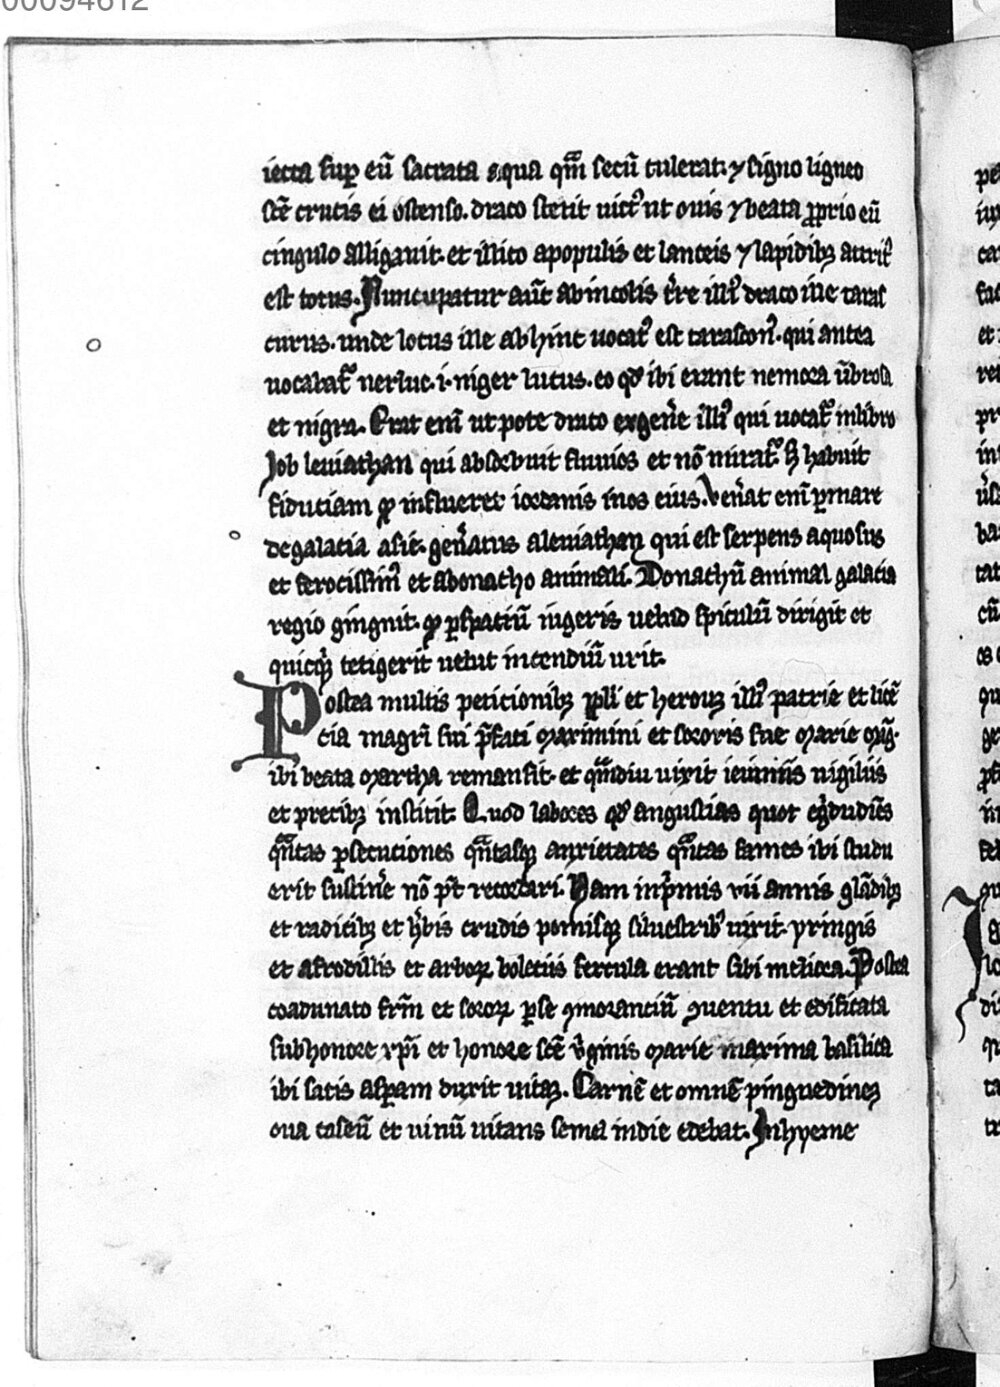 00094612
iecta sup eũ sacrata aqua qm̃ secũ tulerat. ⁊ signo ligneo
scẽ crucis ei ostenso. draco stetit uictꝰ ut ouis ⁊ beata ꝓprio eũ
cingulo alligauit. et illico apopulis et lanceis ⁊ lapidibꝫ attritꝰ
est totus. Nuncupatur aut̃ abincolis t̃re illiꝰ draco ille taras
curus. unde locus ille abhinc uocatᷣ est tarasconꝰ. qui antea
uocabatᷣ nerluc. i. niger lucus. eo qd̾ ibi erant nemora ũbrosa
et nigra. Erat enĩ ut pote draco exgen̾e illiꝰ qui uocatᷣ inlibro
Job leuiathan qui absorbuit fluuios et nõ miratᷣ. ⁊ habuit
fiduciam ꝙ influeret iordanis inos eius. Ven̾at enĩ ꝑmare
degalatia asie. gen̾atus aleuiathan qui est serpens aquosus
et ferocissimꝰ et abonacho animali. Bonachũ animal galatia
regio gingnit. ꝙ ꝑspatiũ iugeris uelud spiculũ dirigit et
quicqͥd tetigerit uelut incendiũ urit.
Postea multis peticionibꝫ ppl̃i et heroꝝ illiꝰ patrie et licẽ
cia magr̃i sui p̃fati maximini et sororis sue marie mag̃.
ibi beata martha remansit. et qm̃diu uixit ieiuniis uigiliis
et precibꝫ institit. Quod labores qd̾ angustias quot eg̾dudiẽs
qñtas ꝑsecutiones qñtasqꝫ anxietates qñtas fames ibi studu
erit sustin̾e nõ pt̃ recordari. Nam inp̾mis vii annis glãdibꝫ
et radicibꝫ et h̾bis crudis pomisqꝫ siluestribꝰ uixit. yringis
et afrodillis et arboꝝ boletiis fercula erant sibi meliora. Postea
coadunato fr̃m et soroꝝ ꝑse ꝯmorantiũ ꝯuentu et edificata
subhonore xp̃i et honore scẽ v̾ginis marie maxima basilica
ibi satis asꝑam duxit uitaꝫ. Carnẽ et omnẽ pinguedineꝫ
oua caseũ et uinũ uitans semel indie edebat. Inhyeme